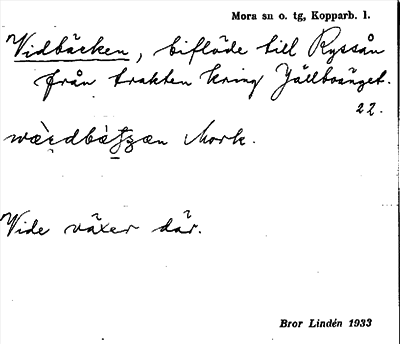 Mora sn o. tg, Kopparb. l.
Vidbäcken, biflöde till Ryssån
från trakten kring
22.
Mork.
Vide växer där.
Bror Lindén 1933